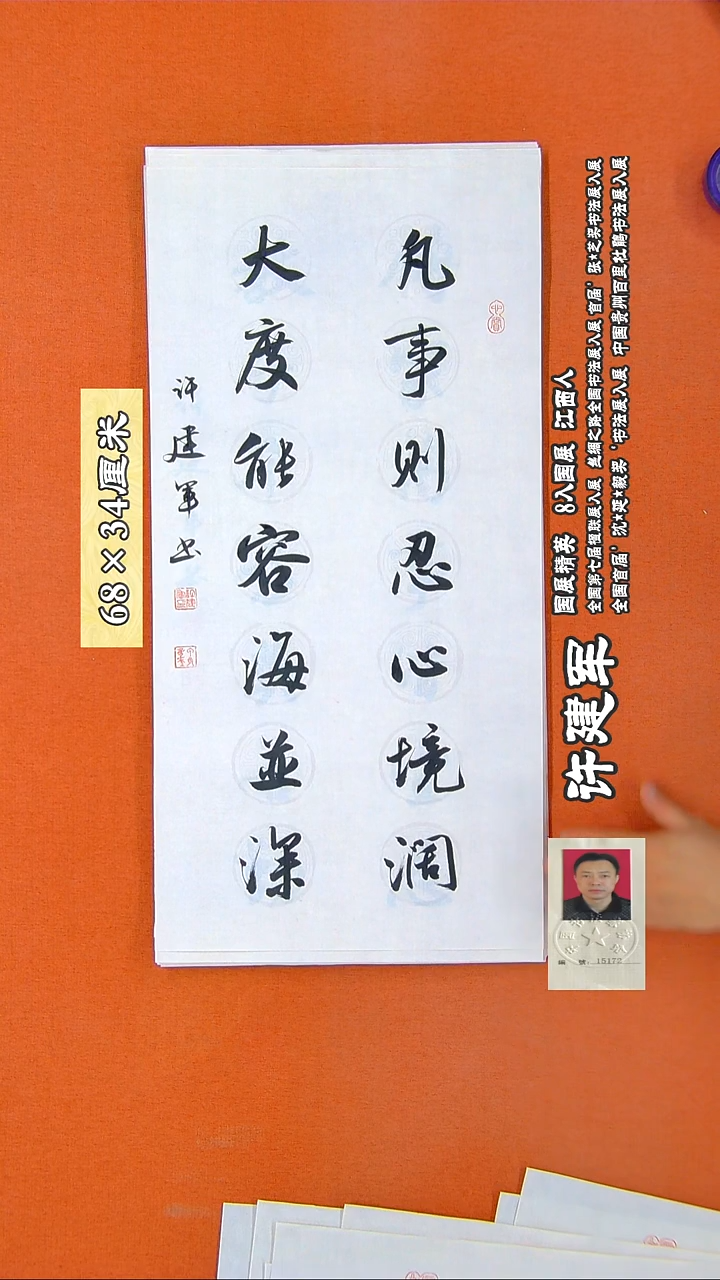 凡事则忍心境阔
大度能容海並深
许建军书
68×34厘米
国展精英 8入国展 江西人
全国第七届楹联展入展 丝绸之路全国书法展入展 首届'张★芝奖书法展入展
全国首届'沈★延★毅奖'书法展入展 中国贵州百里杜鹃书法展入展
许建军
编 号:15172